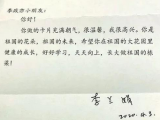 李政彦小朋友：
你好！
你做的卡片充满朝气，很温馨，我很喜欢。你是
祖国的花朵，祖国的未来，希望你在祖国的大花园里
健康的成长，好好学习，天天向上，长大做祖国的栋
梁！
李兰娟
2020.4.3.